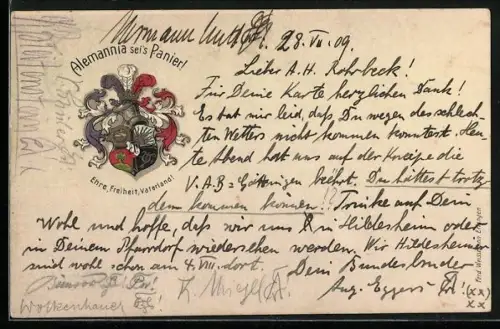 Hermann
28. VII. 09.
Alemannia sei's Panier!
Lieber A. H. Rohrbeck!
Für Deine Karte herzlichen Dank!
Es tut mir leid, daß Du wegen des schlech-
ten Wetters nicht kommen konntest. Heu-
te Abend hat uns auf der Kneipe die
V. A. B = Göttingen beehrt. Du hättest trotz
dem kommen können!! Trinke auf Dein
Ehre, Freiheit, Vaterland!
Wohl und hoffe, daß wir uns in Hildesheim oder
in Deinem Pfarrdorf wiedersehen werden. Wir Hildesheimer
sind wohl schon am 4. VIII. dort. Dein Bundesbruder
Aug. Eggers
(xx)
Wolkenhauer
Erlangen